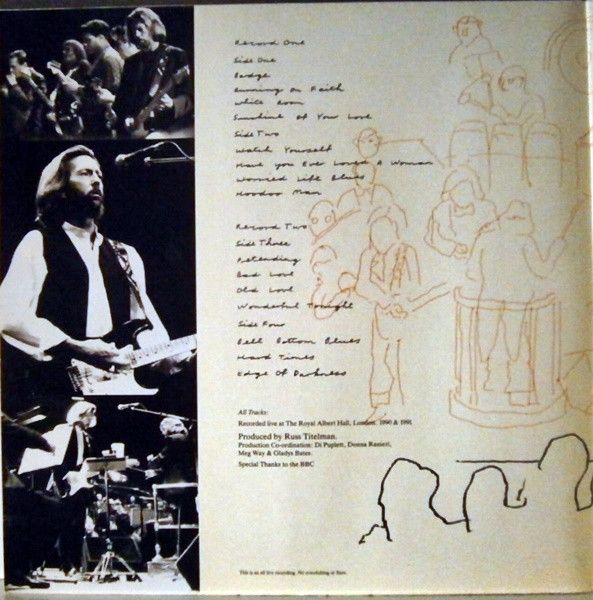 Record One
Side One
Badge
Running on Faith
White Room
Sunshine of Your Love
Side Two
Watch Yourself
Have you Ever Loved A Woman
Worried Life Blues
Hoodoo Man
Record Two
Side Three
Pretending
Bad Love
Old Love
Wonderful Tonight
Side Four
Bell Bottom Blues
Hard Times
Edge Of Darkness
All Tracks:
Recorded live at The Royal Albert Hall, London. 1990 & 1991
Produced by Russ Titelman.
Production Co-ordination: Di Puplett, Donna Ranieri,
Meg Way & Gladys Bates.
Special Thanks to the BBC
This is an all live recording. No overdubbing or fixes.